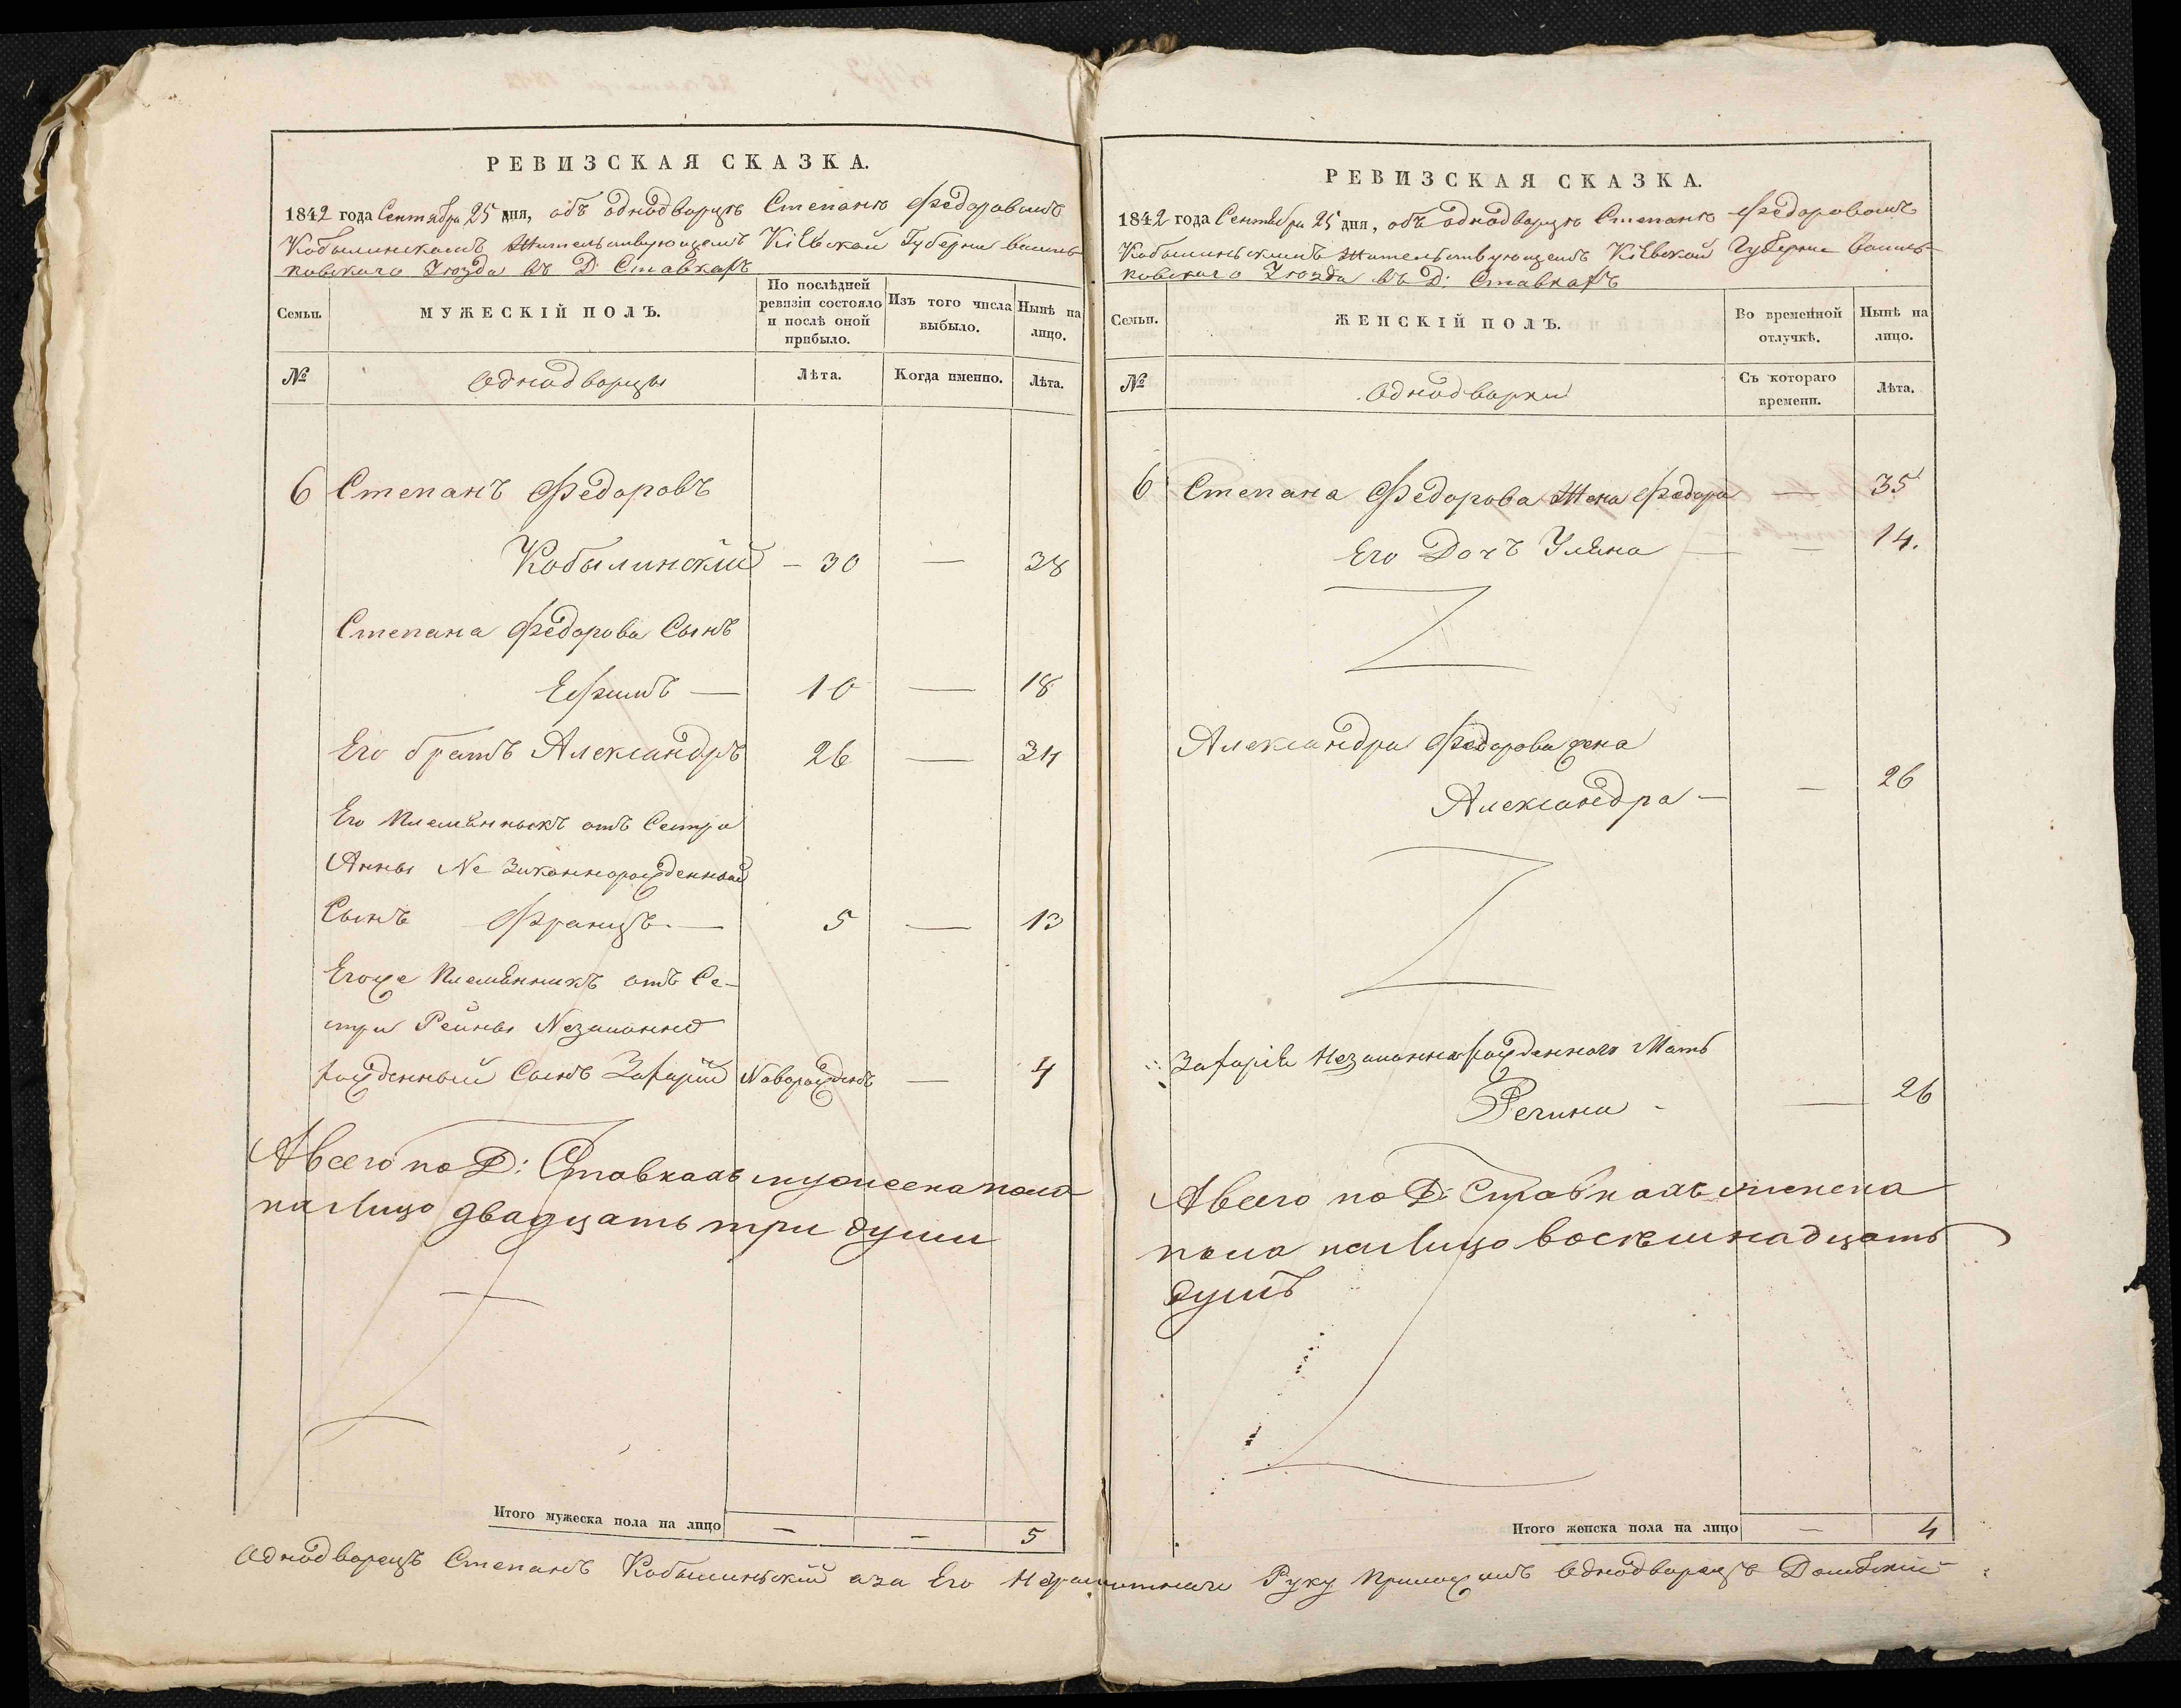 РЕВИЗСКАЯ СКАЗКА.
1842 года Сентября 25 дня, объ однодворцѣ Степанѣ Федоровомъ
Кобылинскомъ Жительствующемъ Кіевской Губерни Василь-
ковского Уѣзда въ Д: Ставкахъ
Семьи.
МУЖЕСКІЙ ПОЛЪ.
По послѣдней ревизіи состояло и послѣ оной прибыло.
Изъ того числа выбыло.
Нынѣ на лицо.
№
Однодворцы
Лѣта.
Когда именно.
Лѣта.
6 Степанъ Федоровъ
Кобылинскій – 30 — 38
Степана Федорова Сынъ
Ефимъ — 10 — 18
Его братъ Александръ 26 — 34
Его Племѣнныкъ отъ Сестри
Анны Не Законнорожденный
Сынъ Францъ. — 5 — 13
Егоже Племѣнникъ отъ Се-
стри Рейны Незаконно
рожденный Сынъ Захарій Новорожденъ — 4
А всего по Д: Ставкахъ мужеска пола
на Лицо двадцать три души
Итого мужеска пола на лицо — — 5
РЕВИЗСКАЯ СКАЗКА.
1842 года Сентября 25 дня, объ однодворцѣ Степанѣ Федоровомъ
Кобылинскимъ Жительствующемъ Кіевской Губерние Василь-
ковского Уѣзда въ Д: Ставкахъ
Семьи.
ЖЕНСКІЙ ПОЛЪ.
Во временной отлучкѣ.
Нынѣ на лицо.
№
Однодворки
Съ котораго времени.
Лѣта.
6 Степана Федорова Жена Федора — 35
Его Дочъ Улѣна — — 14.
Александра Федорова жена
Александра — — 26
Захарія Незаконнорожденного Мать
Регина - — 26
А всего по Д: Ставкахъ женска
пола на Лицо восемнадцать
душъ
Итого женска пола на лицо — 4
Однодворецъ Степанъ Кобылинский аза Его Неграмотнаго Руку Приложилъ Однодворецъ